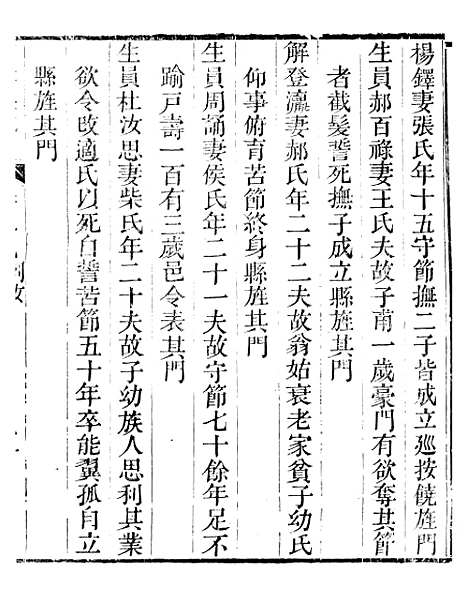 楊鐸妻張氏年十五守節撫二子皆成立廵按饒旌門
生員郝百祿妻王氏夫故子甫一歲豪門有欲奪其節
者截髮誓死撫子成立縣旌其門
解登瀛妻郝氏年二十二夫故翁姑衰老家貧子幼氏
仰事俯育苦節終身縣旌其門
生員周誦妻侯氏年二十一夫故守節七十餘年足不
踰戸壽一百有三歲邑令表其門
生員杜汝思妻柴氏年二十夫故子幼族人思利其業
欲令改適氏以死自誓苦節五十年卒能翼孤自立
縣旌其門